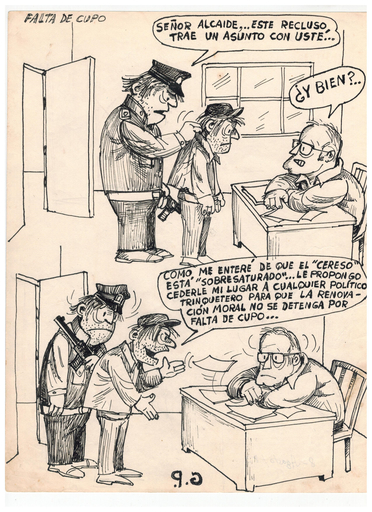 FALTA DE CUPO
SEÑOR ALCAIDE,.. ESTE RECLUSO,
TRAE UN ASUNTO CON USTE...
¿Y BIEN?..
COMO, ME ENTERÉ DE QUE EL "CERESO"
ESTÁ "SOBRESATURADO"... LE PROPONGO
CEDERLE MI LUGAR A CUALQUIER POLÍTICO
TRINQUETERO PARA QUE LA RENOVA-
CIÓN MORAL NO SE DETENGA POR
FALTA DE CUPO...